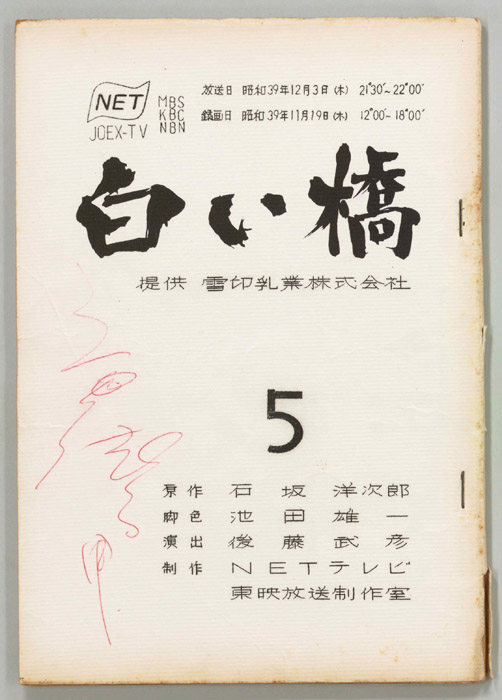 NET
JOEX-TV
MBS
KBC
NBN
放送日 昭和39年12月3日(木) 21°30'~22°00'
録画日 昭和39年11月19日(木) 12°00'~18°00'
白い橋
提供 雪印乳業株式会社
5
原作 石坂洋次郎
脚色 池田雄一
演出 後藤武彦
制作 NETテレビ
東映放送制作室